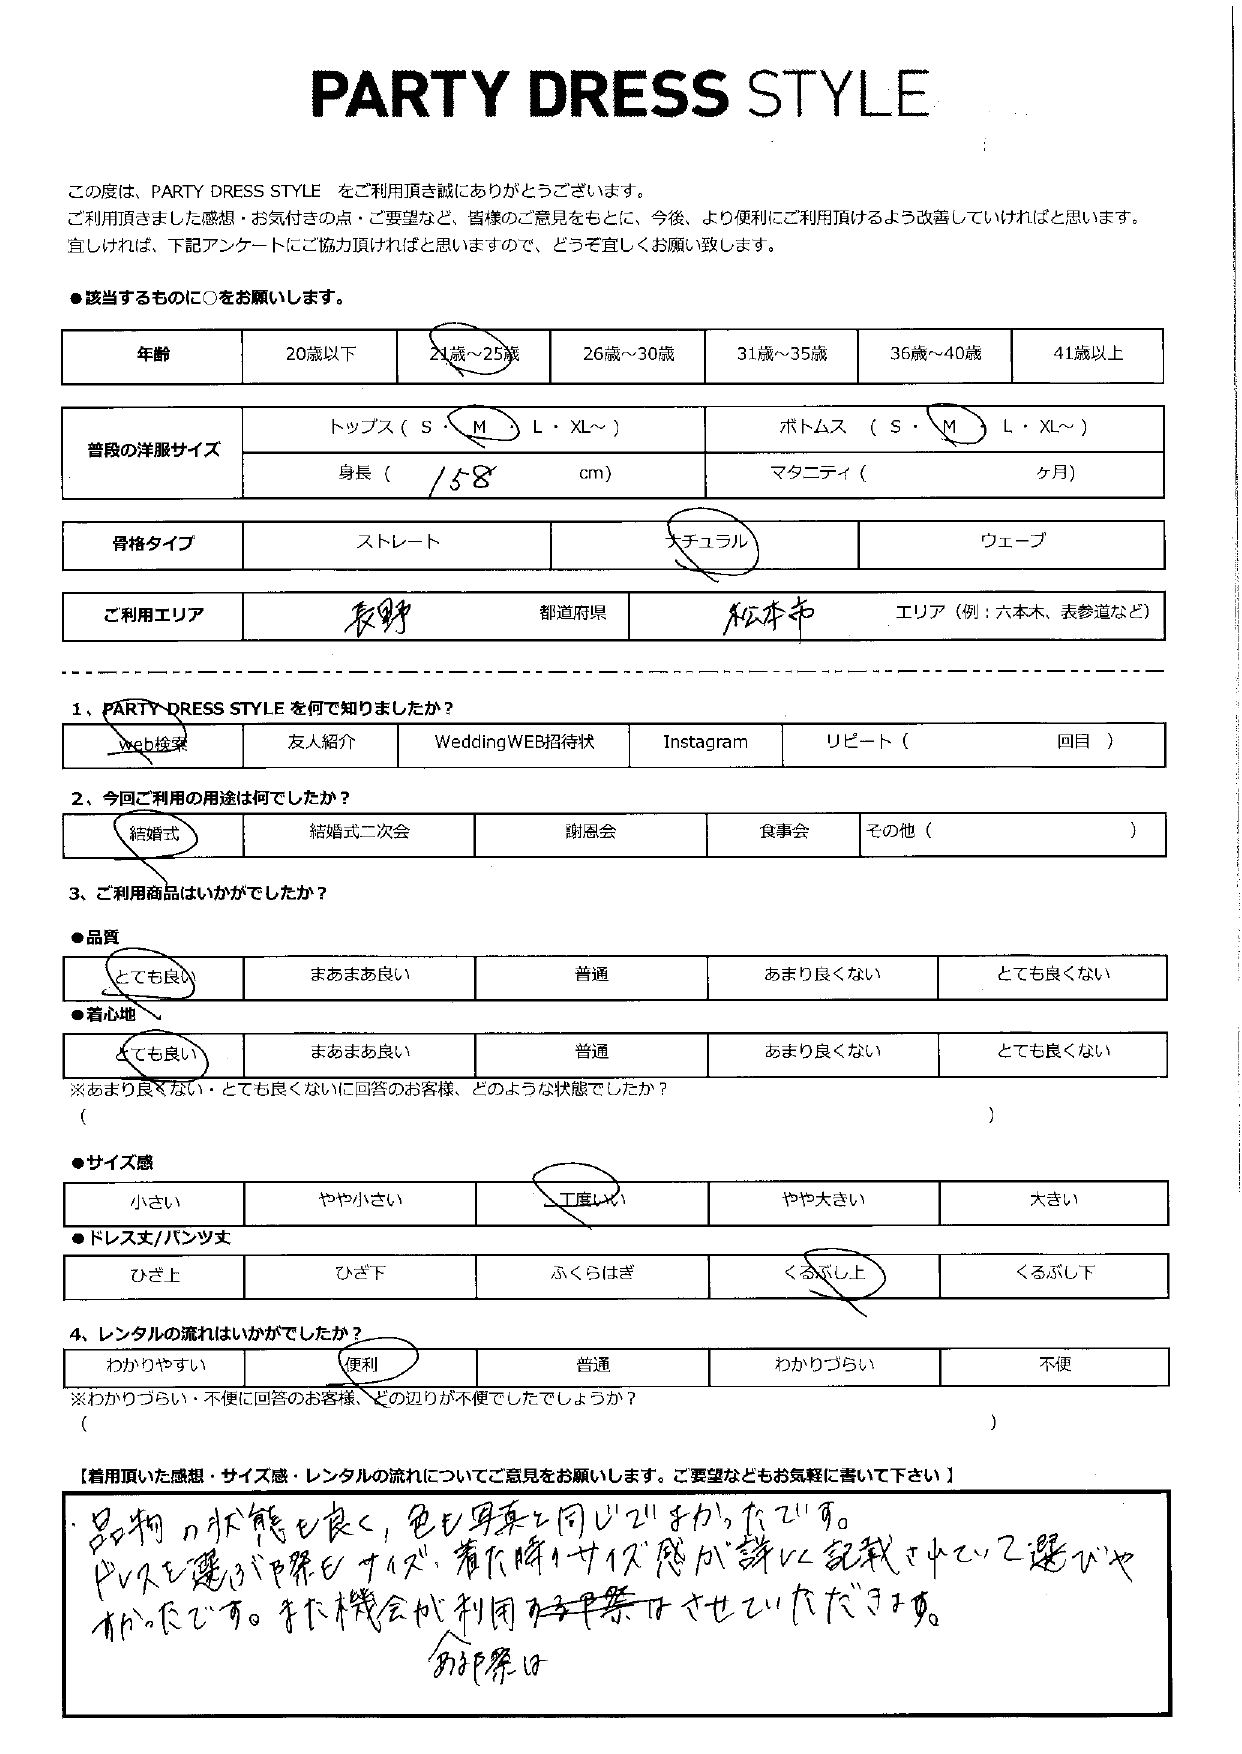 PARTY DRESS STYLE
この度は、PARTY DRESS STYLE をご利用頂き誠にありがとうございます。
ご利用頂きました感想・お気付きの点・ご要望など、皆様のご意見をもとに、今後、より便利にご利用頂けるよう改善していければと思います。
宜しければ、下記アンケートにご協力頂ければと思いますので、どうぞ宜しくお願い致します。
●該当するものに○をお願いします。
年齢 20歳以下 21歳～25歳 26歳～30歳 31歳～35歳 36歳～40歳 41歳以上
普段の洋服サイズ
トップス ( S ・ M ・ L ・ XL～ ) ボトムス ( S ・ M ・ L ・ XL～ )
身長 ( 158 cm) マタニティ ( ヶ月)
骨格タイプ ストレート ナチュラル ウェーブ
ご利用エリア 長野 都道府県 松本市 エリア（例：六本木、表参道など）
1、PARTY DRESS STYLE を何で知りましたか？
web検索 友人紹介 WeddingWEB招待状 Instagram リピート（ 回目 ）
2、今回ご利用の用途は何でしたか？
結婚式 結婚式二次会 謝恩会 食事会 その他（ ）
3、ご利用商品はいかがでしたか？
●品質
とても良い まあまあ良い 普通 あまり良くない とても良くない
●着心地
とても良い まあまあ良い 普通 あまり良くない とても良くない
※あまり良くない・とても良くないに回答のお客様、どのような状態でしたか？
（ ）
●サイズ感
小さい やや小さい 丁度いい やや大きい 大きい
●ドレス丈/パンツ丈
ひざ上 ひざ下 ふくらはぎ くるぶし上 くるぶし下
4、レンタルの流れはいかがでしたか？
わかりやすい 便利 普通 わかりづらい 不便
※わかりづらい・不便に回答のお客様、どの辺りが不便でしたでしょうか？
（ ）
【着用頂いた感想・サイズ感・レンタルの流れについてご意見をお願いします。ご要望などもお気軽に書いて下さい 】
・品物の状態も良く, 色も写真と同じでよかったです。
ドレスを選ぶ際もサイズ、着た時のサイズ感が詳しく記載されていて選びや
すかったです。また機会が利用する際はさせていただきます。
ある際は